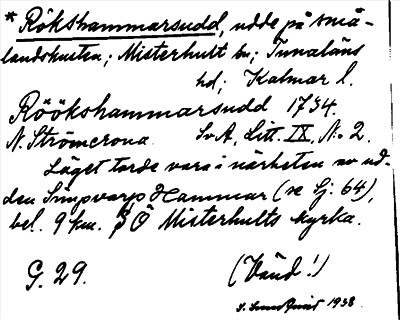 * Rökshammarsudd, udde på små-
landskusten; Misterhult sn; Tunaläns
hd; Kalmar l.
Röökshammarsudd 1734.
N. Strömcrona. SvA, Litt. IX, No 2.
Läget torde vara i närheten av ud-
den Simpvarp Hammar (se Sj. 64),
bel. 9 km. Ö Misterhults kyrka.
G. 29. (Vänd!)
1938